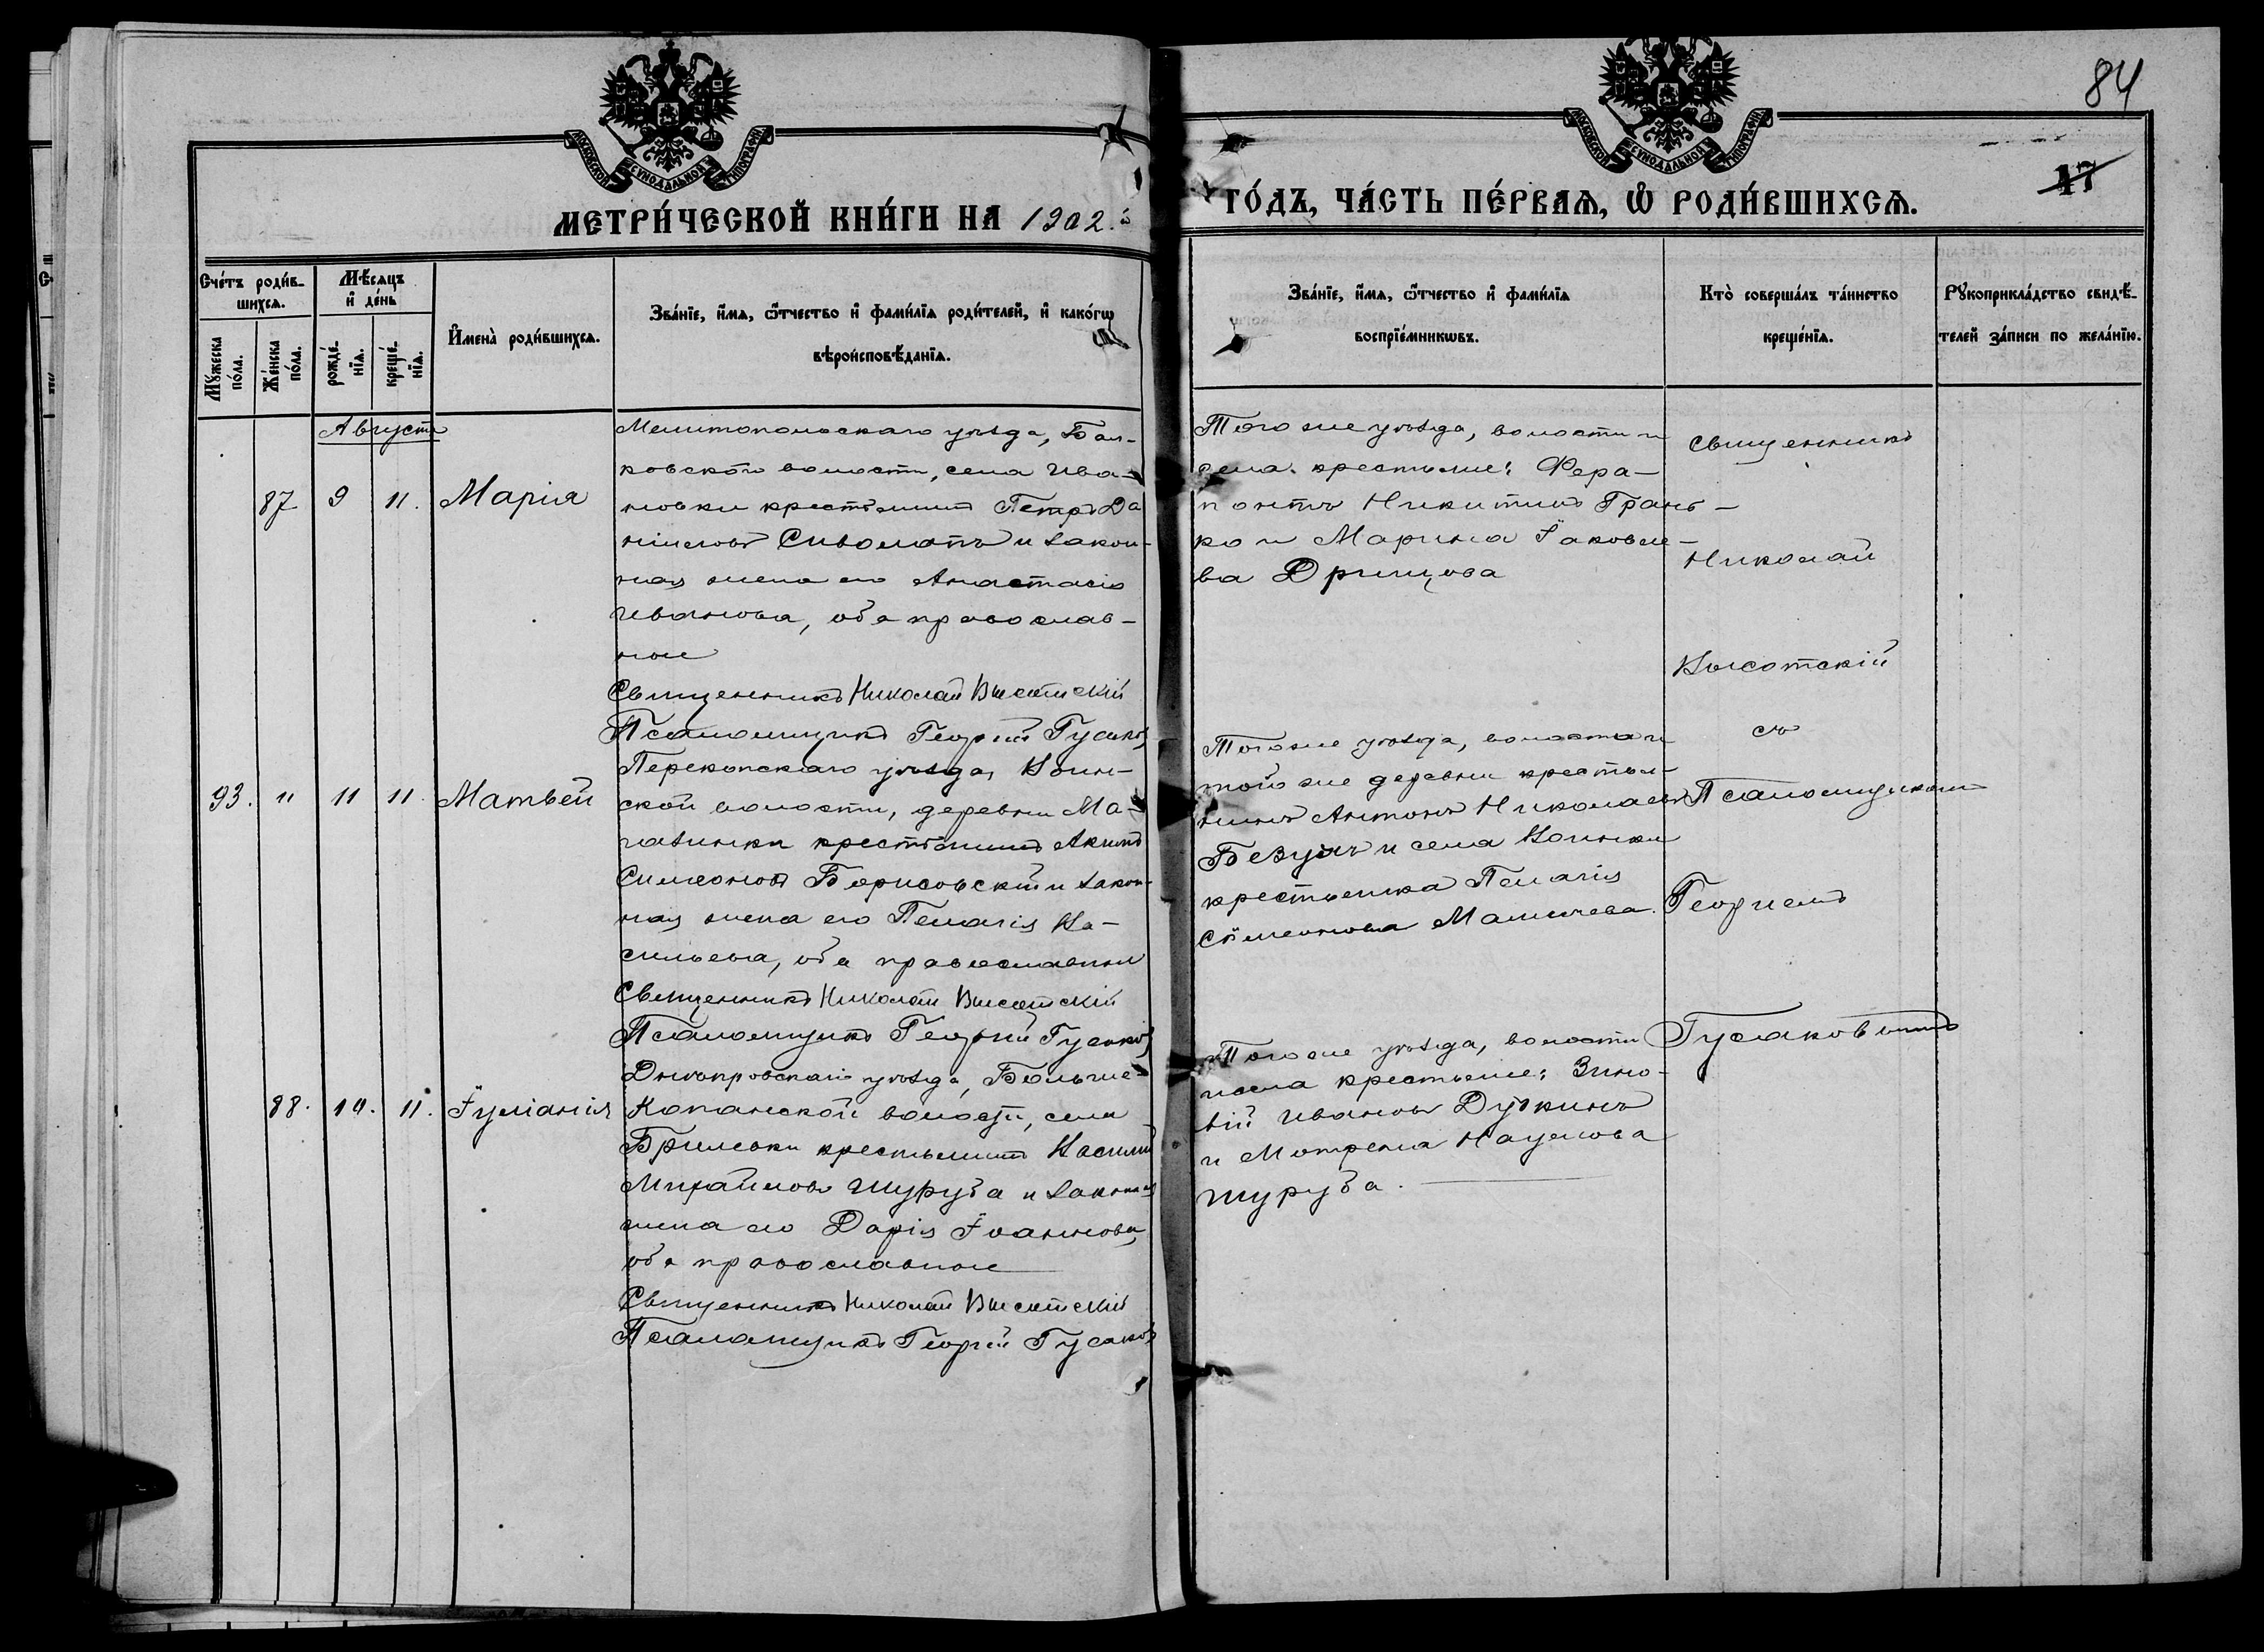 84
17
МОСКОВСКОЙ СѴНОДАЛЬНОЙ ТИПОГРАФІИ
МОСКОВСКОЙ СѴНОДАЛЬНОЙ ТИПОГРАФІИ
МЕТРИ́ЧЕСКОЙ КНИ́ГИ НА 1902.й
ГО́ДЪ, ЧА́СТЬ ПЕ́РВАѦ, Ѡ҆ РОДИ́ВШИХСѦ.
Сче́тъ роди́в-
шихсѧ.
Мꙋ́жеска по́ла.
Же́нска по́ла.
Мѣ́сѧцъ
и҆ де́нь
рожде́-
нїѧ.
креще́-
нїѧ.
И҆мена̀ роди́вшихсѧ.
Зва́нїе, и҆́мѧ, ѻ҆́тчество и҆ фами́лїѧ роди́телей, и҆ како́гѡ
вѣроисповѣ́данїѧ.
Зва́нїе, и҆́мѧ, ѻ҆́тчество и҆ фами́лїѧ
воспрїе́мникѡвъ.
Кто̀ соверша́лъ та́инство
креще́нїѧ.
Рꙋкоприкла́дство свидѣ́-
телей за́писи по жела́нїю.
Августъ
87 9 11. Марія
Мелитопольскаго уѣзда, Бал-
ковской волости, села Ива-
новки крестьянинъ Петръ Да
ніиловъ Сиволапъ и закон-
ная жена его Анастасія
Иванова, оба православ-
ные
Священникъ Николай Высотскій
Псаломщикъ Георгій Гусаковъ
Того же уѣзда, волости и
села крестьяне: Фера-
понтъ Никитинъ Грань-
ко и Марина Іаковле-
ва Дрищова
Священникъ
Николай
Высотскій
съ
Псаломщикомъ
Георгіемъ
Гусаковымъ
93. " 11 11. Матвей
Перекопскаго уѣзда, Воин-
ской волости, деревни Ма-
газинки крестьянинъ Акимъ
Симеоновъ Борисовскій и закон-
ная жена его Пелагія Ва-
сильева, оба православные
Священникъ Николай Высотскій
Псаломщикъ Георгій Гусаковъ
Того же уѣзда, волости и
той же деревни крестья-
нинъ Антонъ Николаевъ
Безумъ и села Воинки
крестьянка Пелагія
Симеонова
88. 10. 11. Іуліанія
Днѣпровскаго уѣзда, Больше-
Копанской волости, села
Брилевки крестьянинъ Василій
Михайловъ Шуруба и законная
жена его Дарія Іоаннова,
оба православные
Священникъ Николай Высотскій
Псаломщикъ Георгій Гусаковъ
Того же уѣзда, волости
и села крестьяне: Зино-
вій Ивановъ Дудкинъ
и Мотрона Наумова
Шуруба.